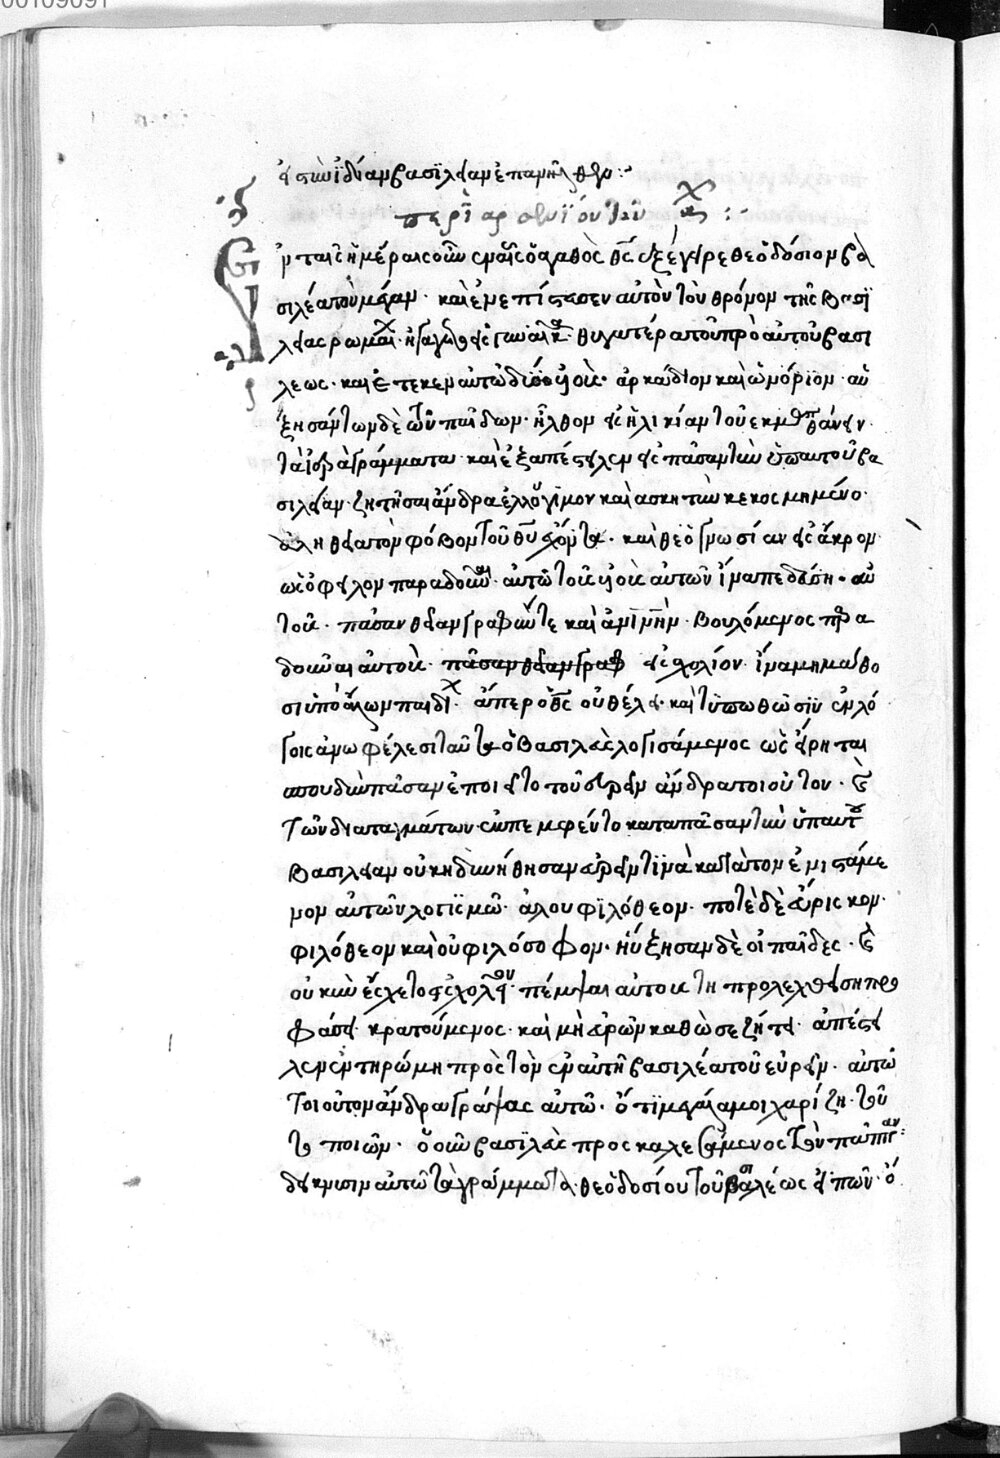 εἰς τὴν ἰδίαν βασιλείαν ἐπανῆλθεν :~
περὶ ἀρσενίου τοῦ
Ἐν ταῖς ἡμέραις οὖν ἐμαῖς ὁ ἀγαθὸς θς ἐξέγειρε θεοδόσιον βα
σιλέα τοῦ μέγαν · καὶ ἐνεπίστεσεν αὐτὸν τὸν θρόνον τῆς βασι
λείας ῥωμαι · εἰς γυναῖκ θυγατέρα τοῦ πρὸ αὐτοῦ βασι
λέως · καὶ ἔτεκεν αὐτῶ δύο υἱοὺς · ἀρκάδιον καὶ ὠνόριον · αὐ
ξησάντων δὲ τῶν παίδων · ἦλθον εἰς ἡλικίαν τοῦ ἐκμανθάνειν ·
τὰ ἱερὰ γράμματα · καὶ ἐξαπέστειλεν εἰς πᾶσαν τὴν ὑπ αὐτοῦ βα
σιλείαν · ζητῆσαι ἄνδρα ἐλλόγιμον καὶ ἀσκητὴν κεκοσμημένο ·
ἀληθεία τὸν φόβον τοῦ θυ ἔχοντα · καὶ θεογνωσίαν εἰς ἄκρον ·
ὡς ὀφεῖλον παραδοῦναι αὐτῶ τοὺς υἱοὺς αὐτοῦ ἵνα πεδεύση · αὐ
τοὺς · πᾶσαν θείαν γραφὴν τε καὶ · βουλόμενος παρα
δοῦναι αὐτοὺς · πᾶσαν θείαν γραφ εἰς σχολίον · ἵνα μη μάθο
σι ὑπὸ ἄλων παιδι · ἅπερ ὁ θς οὐ θέλει · καὶ τυπωθῶσιν ἐν λό
γοις ἀνωφέλεσι ταῦτα ὁ βασιλεὺς λογισάμενος ὡς εἴρηται
σπουδὴν πᾶσαν ἐποιεῖτο τοῦ εὑρεῖν ἄνδρα τοιοῦτον ·
τῶν διαταγμάτων κατὰ πᾶσαν τὴν ὑπ αυτοῦ
βασιλείαν οὐκ ἠδυνήθησαν εὑρεῖν τινὰ κατὰ τὸν ἐνιστάμε
νον αὐτῶν λογισμῶ · ἀλ οὐ φιλόθεον · ποτὲ δὲ εὕρισκον ·
φιλόθεον καὶ οὐ φιλόσοφον · ηὔξησαν δὲ οἱ παῖδες ·
οὐκ ἠνέσχετο εἰς σχολεῖον πέμψαι αὐτοὺς τῆ προλεχθείση προ
φάσει κρατούμενος · καὶ μὴ εὑρὼν καθὼς ἐζήτει · ἀπέστει
λεν ἐν τῆ ῥώμη πρὸς τὸν ἐν αὐτῆ βασιλέα τοῦ εὑρεῖν · αὐτῶ
τοιοῦτον ἄνδρα γράψας αὐτῶ · ὅτι μεγάλα μοι χαρίζη · τοῦ
το ποιῶν · ὁ οὖν βασιλεὺς προσκαλεσάμενος τὸν
δείκνυσιν αὐτῶ τὰ γράμματα θεοδοσίου τοῦ βασιλέως εἰπῶν · ὁ